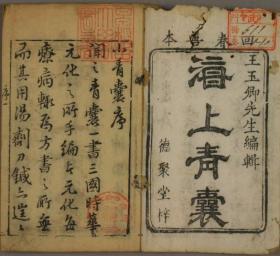 回春善本
王玉卿先生編輯
上青囊
德聚堂梓
小青囊序
聞之青囊一書三國時華
元化之所手編也元化每
療病輒為方書之所無
而其用湯劑刀鍼
序一